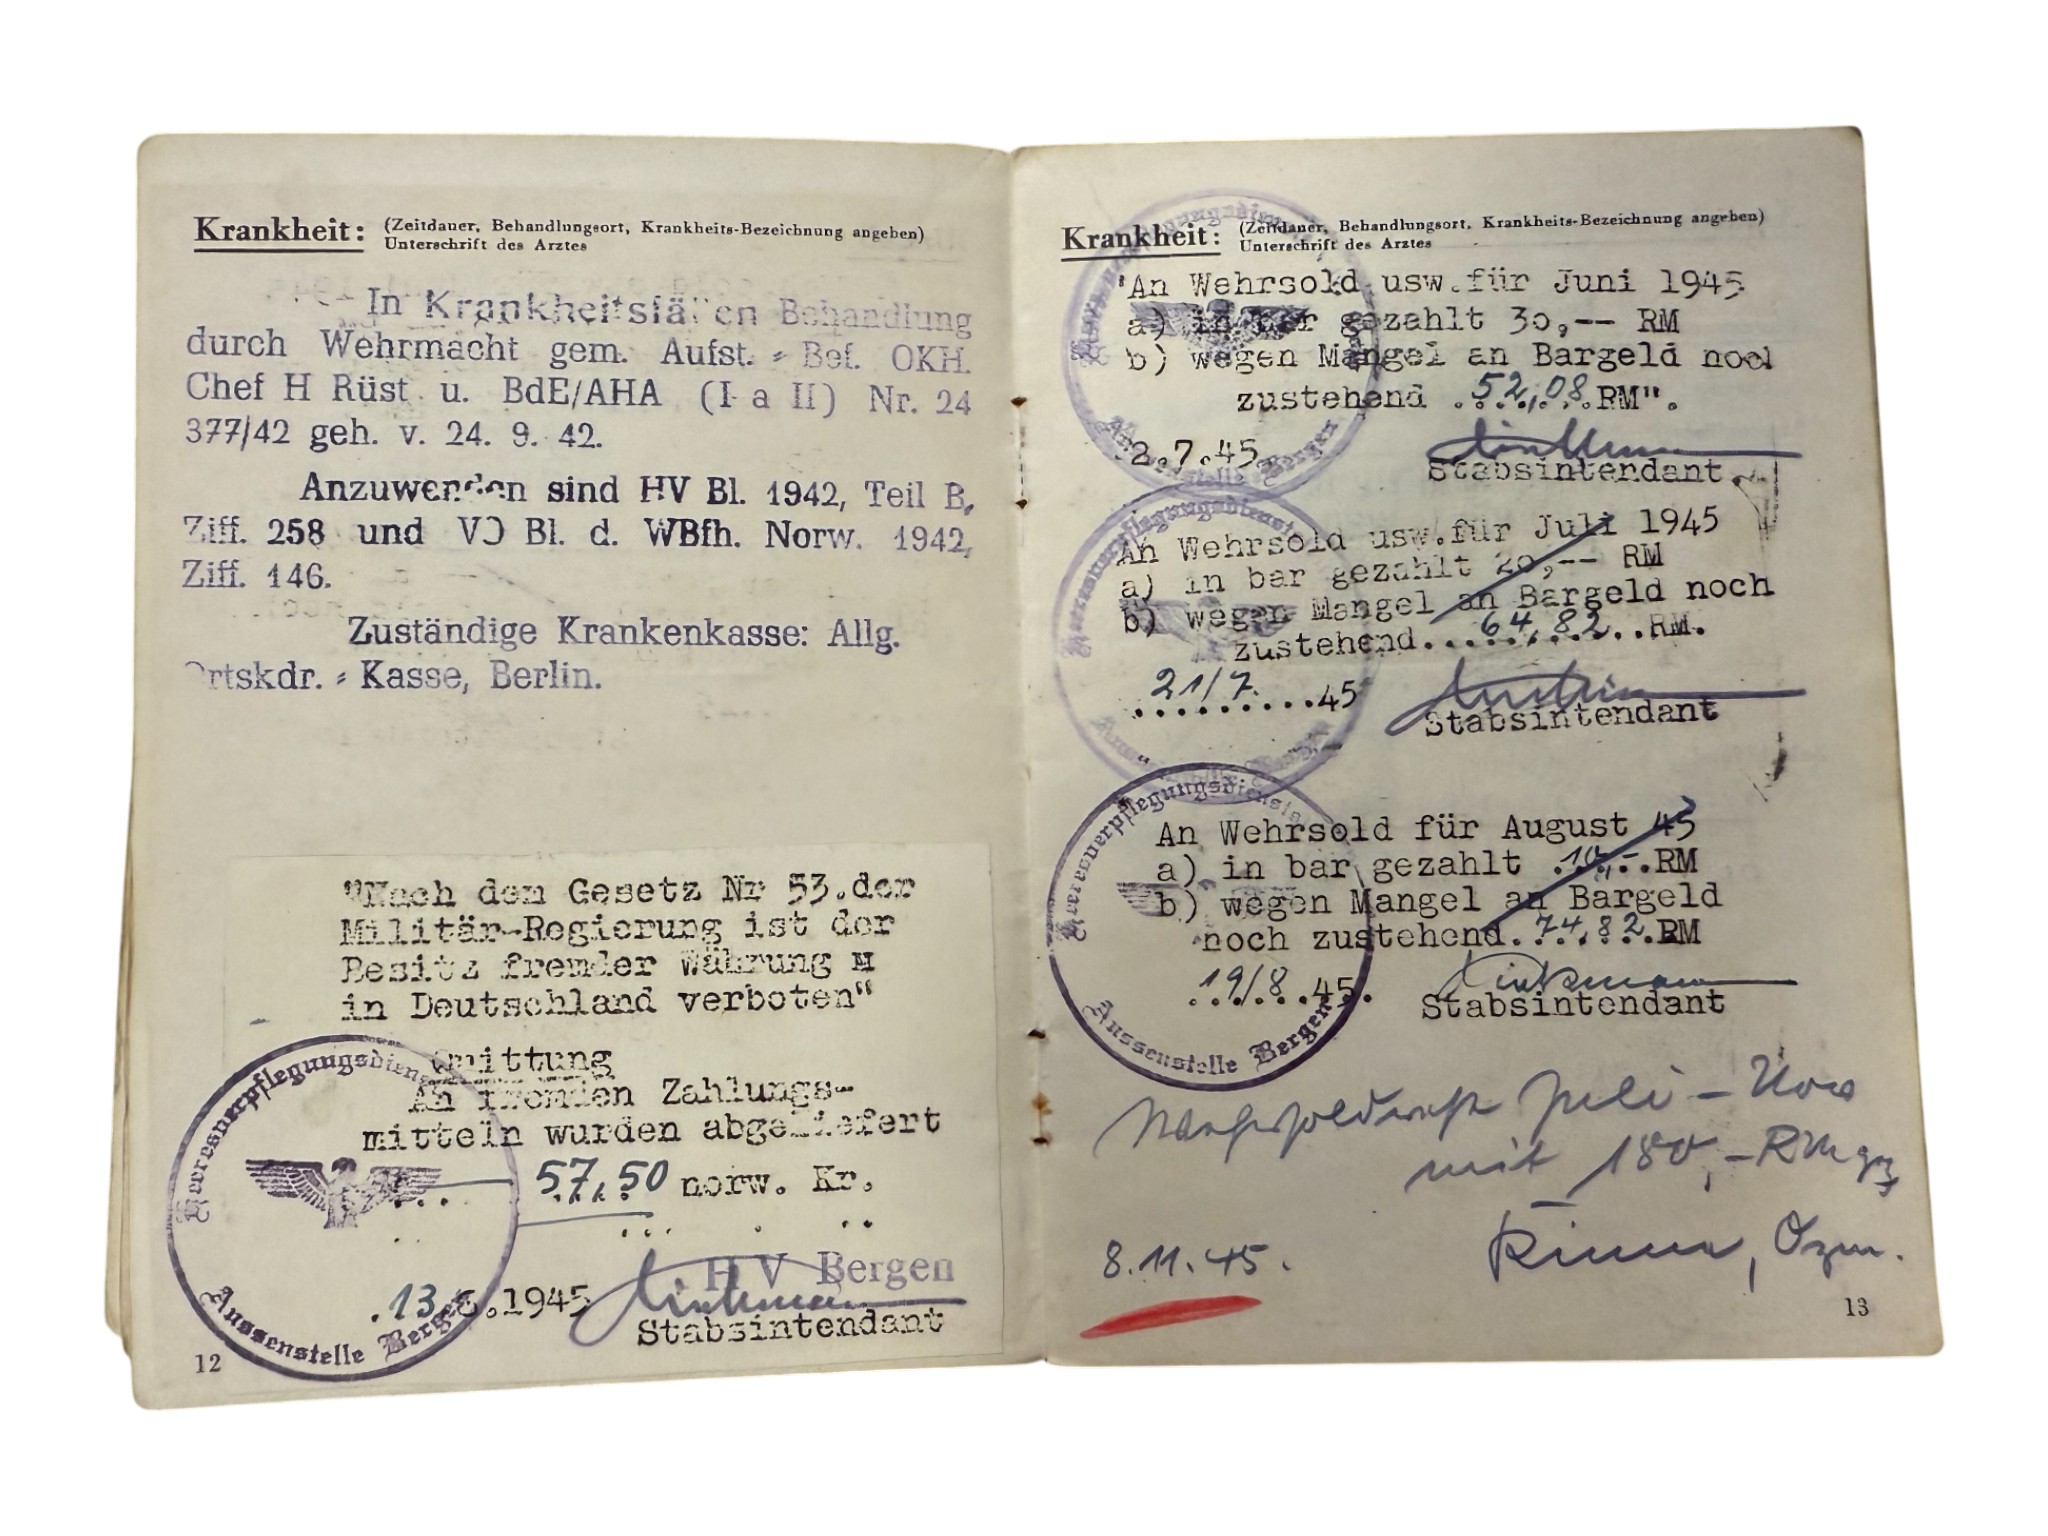 Krankheit: (Zeitdauer, Behandlungsort, Krankheits-Bezeichnung angeben)
Unterschrift des Arztes
In Krankheitsfällen Behandlung
durch Wehrmacht gem. Aufst. - Bef. OKH.
Chef H Rüst u. BdE/AHA (I a II) Nr. 24
377/42 geh. v. 24. 9. 42.
Anzuwenden sind HV Bl. 1942, Teil B,
Ziff. 258 und VO Bl. d. WBfh. Norw. 1942,
Ziff. 146.
Zuständige Krankenkasse: Allg.
Ortskdr. - Kasse, Berlin.
"Nach dem Gesetz Nr 53.der
Militär-Regierung ist der
Besitz fremder Währung M
in Deutschland verboten"
Quittung
An fremden Zahlungs-
mitteln wurden abgeliefert
57,50 norw. Kr.
H V Bergen
.13.8.1945
Stabsintendant
Heeresverpflegungsdienst
Aussenstelle Bergen
12
Krankheit: (Zeitdauer, Behandlungsort, Krankheits-Bezeichnung angeben)
Unterschrift des Arztes
"An Wehrsold usw.für Juni 1945
a) in bar gezahlt 30,-- RM
b) wegen Mangel an Bargeld noch
zustehend .52,08.RM".
2.7.45
Stabsintendant
Aussenstelle Bergen
Heeresverpflegungsdienst
An Wehrsold usw.für Juli 1945
a) in bar gezahlt 20,-- RM
b) wegen Mangel an Bargeld noch
zustehend....64,82..RM.
21/7.45
Stabsintendant
Heeresverpflegungsdienst
An Wehrsold für August 45
a) in bar gezahlt .10,-.RM
b) wegen Mangel an Bargeld
noch zustehend.74,82.RM
19/8.45.
Stabsintendant
Aussenstelle Bergen
Juli - Nov
mit 180,-RM gez
8.11.45.
13